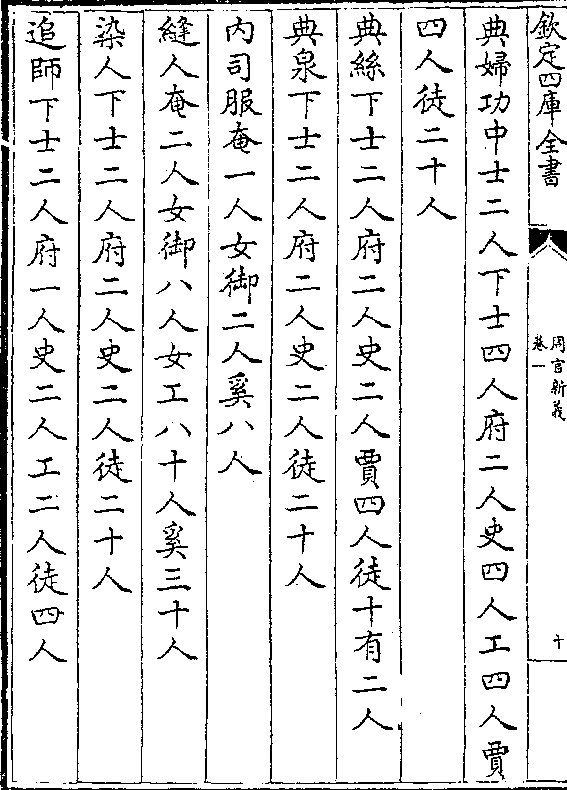 欽定四庫全書
周官新義
卷一
十
典婦功中士二人下士四人府二人史四人工四人賈
四人徒二十人
典絲下士二人府二人史二人賈四人徒十有二人
典枲下士二人府二人史二人徒二十人
内司服奄一人女御二人奚八人
縫人奄二人女御八人女工八十人奚三十人
染人下士二人府二人史二人徒二十人
追師下士二人府一人史二人工二人徒四人